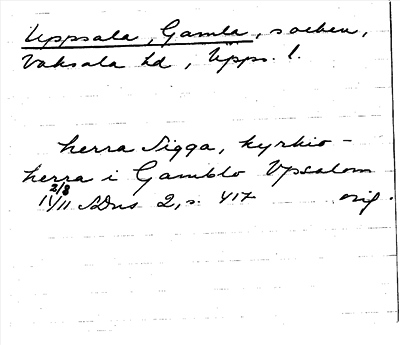 Uppsala, Gamla, socken,
Vaksala hd, Upps. l.
herra Sigga, kyrkio-
herra i Gamblo Vpsalom
2/8
11/11 SDns 2, s. 417 orig.